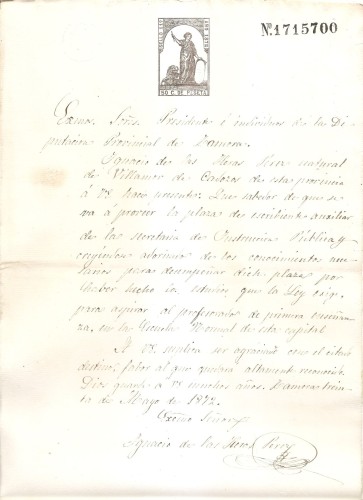 SELLO 11º
AÑO 1872
50 C. DE PESETA
Nº 1715700
Exmos. Sres. Presidente é individuos de la Di-
putacion Provincial de Zamora
Ignacio de las Heras Perez natural
de Villamor de Cadozos de esta provincia
á VE. hace presente: Que sabedor de que se
va á proveer la plaza de escribiente ausiliar
de la secretaria de Instruccion Publica y
adornado de los conocimientos
necesarios para desempeñar dicha plaza por
haber hecho los estudios que la Ley exige
para aspirar al profesorado de primera enseñan-
za, en la Escuela Normal de esta capital
A VE. suplica ser agraciado con el citado
destino; favor al que quedará altamente reconocido.
Dios guarde á VE muchos años. Zamora trein-
ta de Mayo de 1872.
Exmo Señor
Ignacio de las Heras Perez